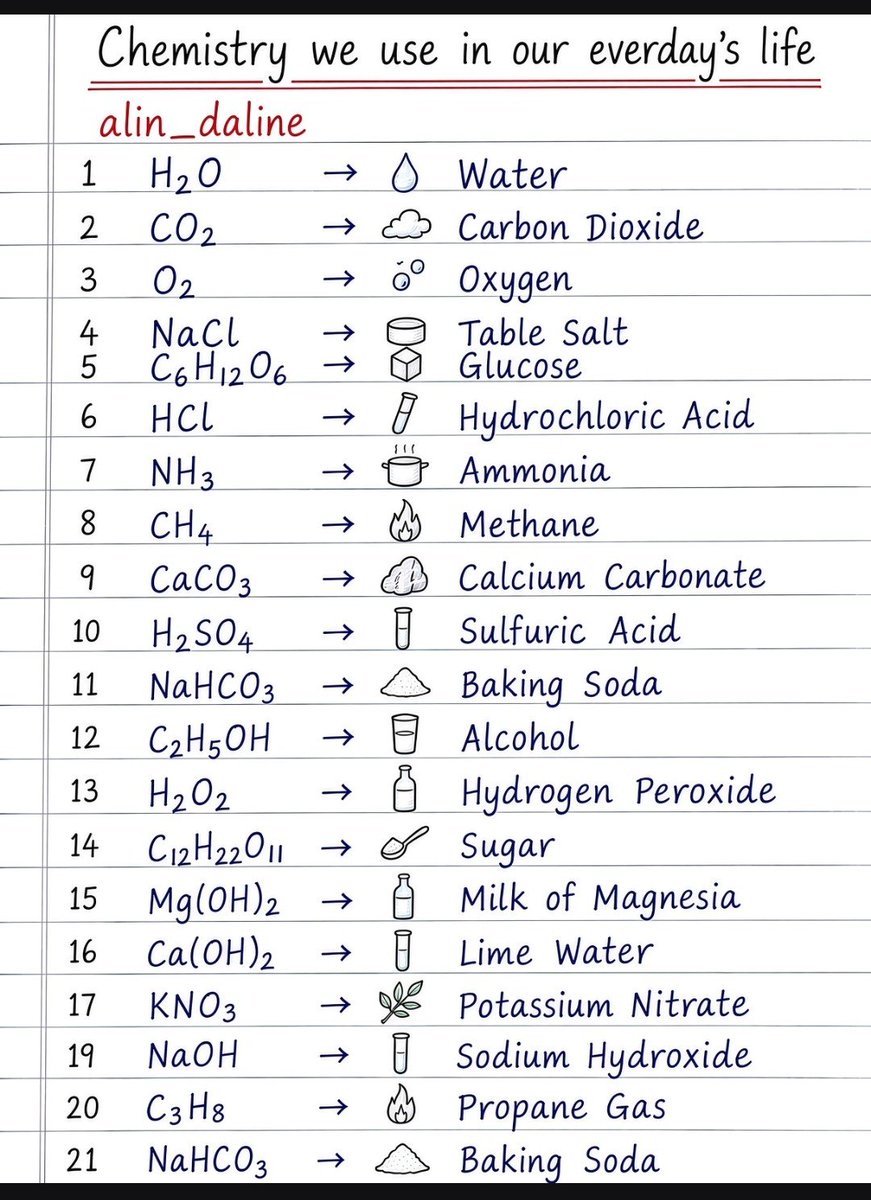 Chemistry we use in our everday's life
alin_daline
1 H₂O → Water
2 CO₂ → Carbon Dioxide
3 O₂ → Oxygen
4 NaCl → Table Salt
5 C₆H₁₂O₆ → Glucose
6 HCl → Hydrochloric Acid
7 NH₃ → Ammonia
8 CH₄ → Methane
9 CaCO₃ → Calcium Carbonate
10 H₂SO₄ → Sulfuric Acid
11 NaHCO₃ → Baking Soda
12 C₂H₅OH → Alcohol
13 H₂O₂ → Hydrogen Peroxide
14 C₁₂H₂₂O₁₁ → Sugar
15 Mg(OH)₂ → Milk of Magnesia
16 Ca(OH)₂ → Lime Water
17 KNO₃ → Potassium Nitrate
19 NaOH → Sodium Hydroxide
20 C₃H₈ → Propane Gas
21 NaHCO₃ → Baking Soda